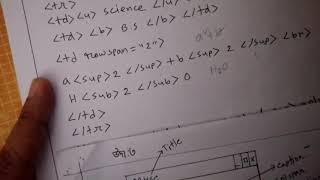 <tr>
<td><u> science </u>
<td> <b> B.S </b> </td>
<td rowspan="2">
a<sup> 2 </sup> + b <sup> 2 </sup> <br>
H <sub> 2 </sub> O
H₂O
</td>
</tr>
Title
caption